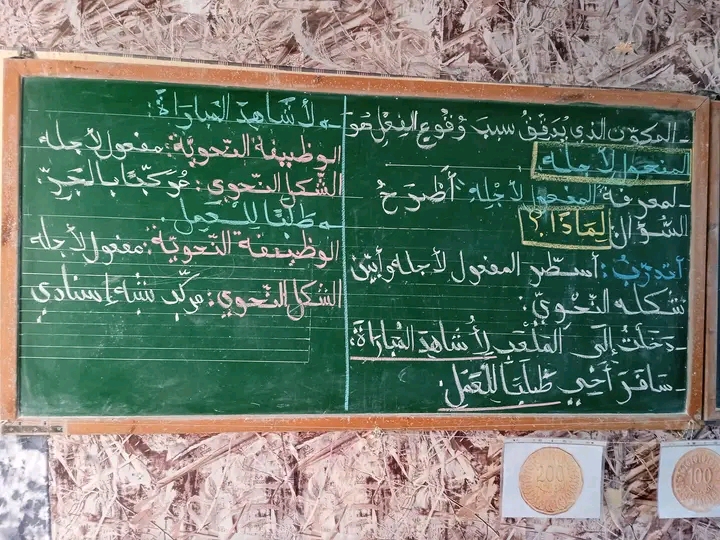 - المكوّن الذي يُدَقِّقُ سببَ وُقُوعِ الفعل هو
المفعول لأجله.
- لمعرفة المفعول لأجْلِهِ أَطْرَحُ
السُّؤال: لِمَاذَا؟
أتدرّبُ: أسطّر المفعول لأجله وأبيّن
شكله النّحويّ:
- دَخَلْتُ إلى المَلْعَبِ لِأُشَاهِدَ المُبَارَاةَ.
- سَافَرَ أَخِي طَلَبًا لِلْعَمَلِ.
- لأشَاهِدَ المُبَارَاةَ:
الوظيفة النّحويّة: مفعول لأجله
الشّكل النّحوي: مُركّبًا بالجرّ
- طَلَبًا لِلْعَمَلِ
الوظيفة النّحويّة: مفعول لأجله
الشكل النّحوي: مركّب شبه إسنادي
200
100